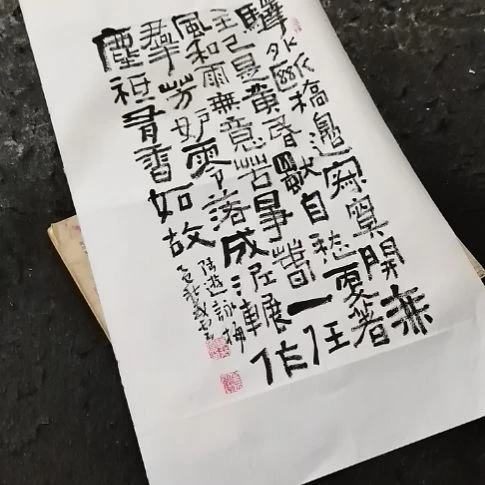 驛外斷橋邊寂寞開無
主已是黃昏獨自愁更著
風和雨無意苦爭春一任
群芳妒零落成泥輾作
塵祗有香如故
陸遊詠梅
乙巳秋